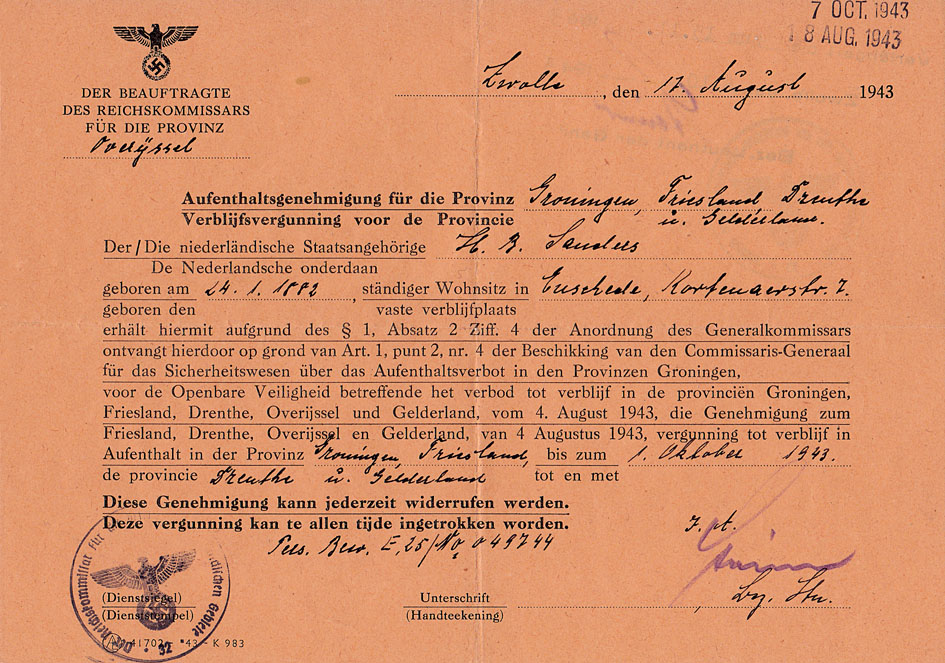 7 OCT. 1943
18 AUG. 1943
DER BEAUFTRAGTE
DES REICHSKOMMISSARS
FÜR DIE PROVINZ
Overijssel
Zwolle, den 17. August 1943
Aufenthaltsgenehmigung für die Provinz Groningen, Friesland Drenthe
Verblijfsvergunning voor de Provincie u. Gelderland.
Der/Die niederländische Staatsangehörige H. B. Sanders
De Nederlandsche onderdaan
geboren am 24. 1. 1882, ständiger Wohnsitz in Enschede, Kortenaerstr. 7.
geboren den vaste verblijfplaats
erhält hiermit aufgrund des § 1, Absatz 2 Ziff. 4 der Anordnung des Generalkommissars
ontvangt hierdoor op grond van Art. 1, punt 2, nr. 4 der Beschikking van den Commissaris-Generaal
für das Sicherheitswesen über das Aufenthaltsverbot in den Provinzen Groningen,
voor de Openbare Veiligheid betreffende het verbod tot verblijf in de provinciën Groningen,
Friesland, Drenthe, Overijssel und Gelderland, vom 4. August 1943, die Genehmigung zum
Friesland, Drenthe, Overijssel en Gelderland, van 4 Augustus 1943, vergunning tot verblijf in
Aufenthalt in der Provinz Groningen, Friesland, bis zum 1. Oktober 1943.
de provincie Drenthe u. Gelderland tot en met
Diese Genehmigung kann jederzeit widerrufen werden.
Deze vergunning kan te allen tijde ingetrokken worden.
Pers. Bew. E, 25/No 049744
(Dienstsiegel) Unterschrift
(Dienststempel) (Handteekening)
41702 - '43 - K 983